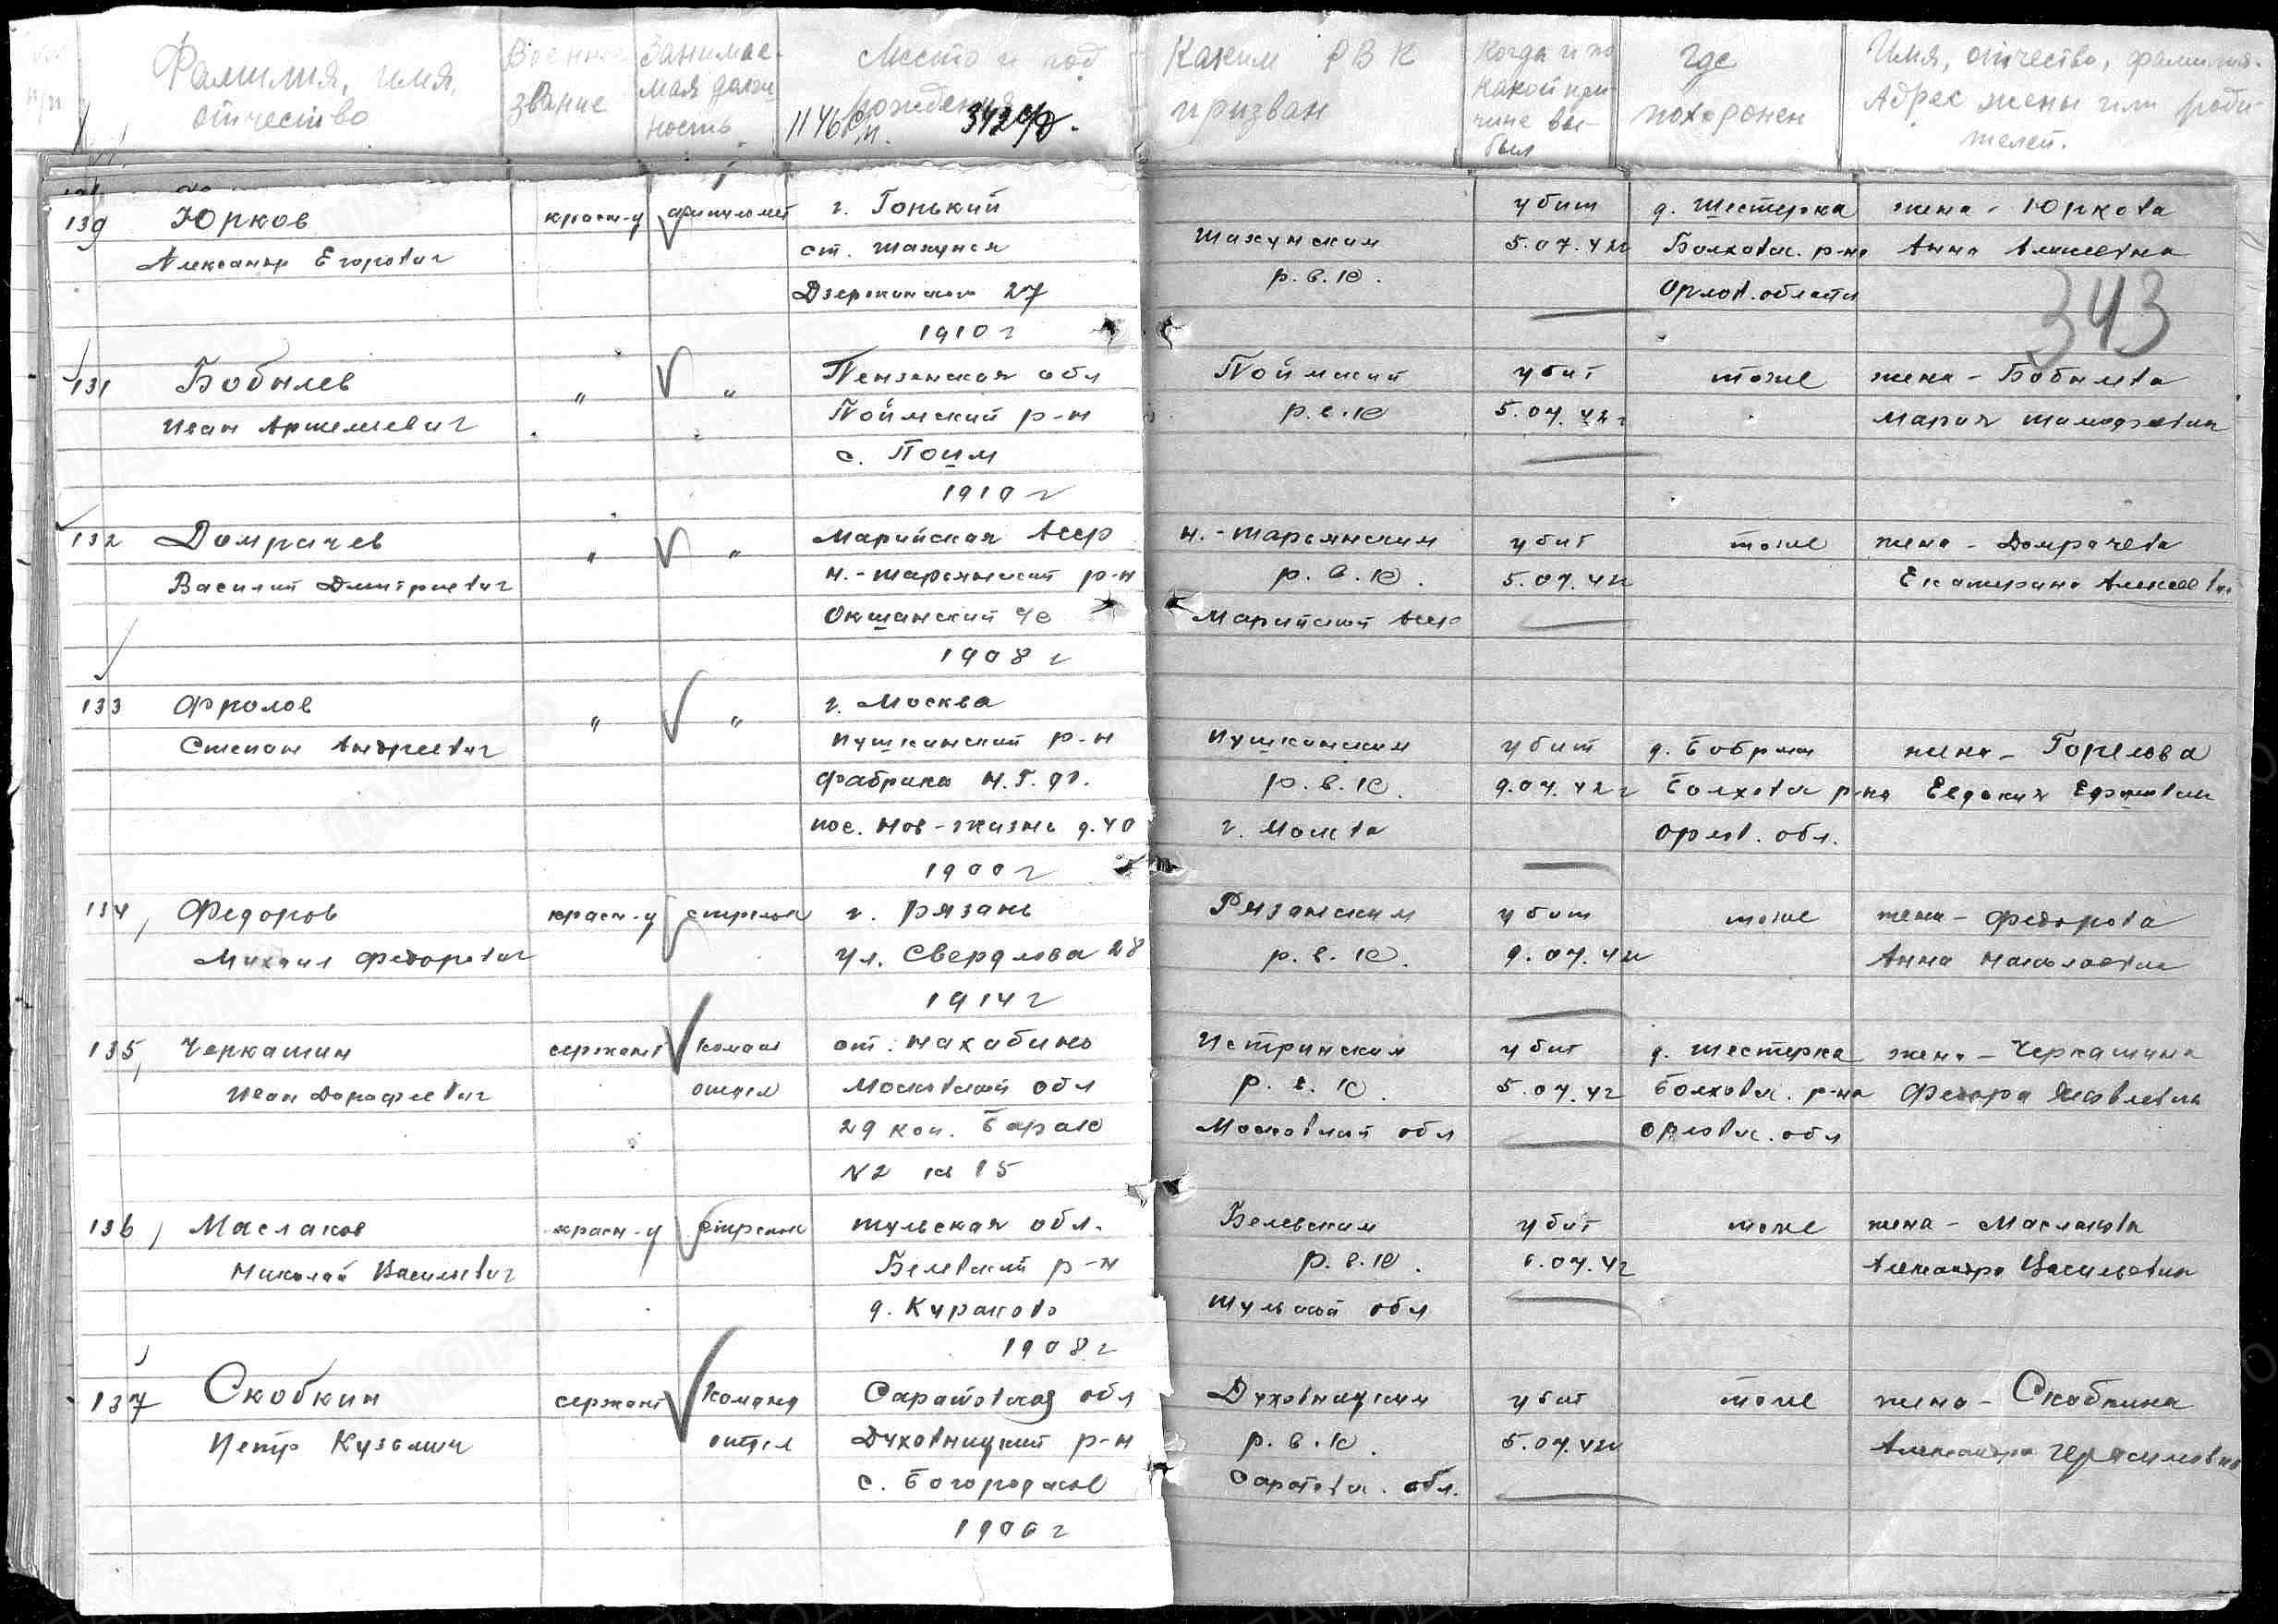 Фамилия, имя, отчество
Военное звание
Занимаемая должность
Место и год рождения
1146 сп. 342 сд.
Каким РВК призван
Когда и по какой причине выбыл
Где похоронен
Имя, отчество, фамилия. Адрес жены или родителей.
343
139 Юрков красн-ц г. Горький убит д. Шестерка жена - Юркова
Александр Егорович ст. Шахунья Шахунским 5.07.42г Болховск. р-на Анна Алексеевна
Дзержинского 27 р.в.к. Орлов. области
1910 г
131 Бобылев " " Пензенская обл Поймский убит тоже жена - Бобылева
Иван Артемьевич Поймский р-н р.в.к 5.07.42г Мария Тимофеевна
с. Поим
1910 г
132 Домрачев " " Марийская Асср н.-Тарьянским убит тоже жена - Домрачева
Василий Дмитриевич н.-Тарьянский р-н р.в.к. 5.07.42г Екатерина Алексеев
Окшанский с/с Марийской Асср
1908 г
133 Фролов " " г. Москва
Степан Андреевич Пушкинский р-н Пушкинским убит д. Бобрики жена - Горелова
фабрика р.в.к. 9.07.42г Болховск р-на Евдокия Ефимовна
пос. Нов-жизнь д. 40 г. Москва Орлов. обл.
1900 г
134, Федоров красн-ц стрелок г. Рязань Рязанским убит тоже жена - Федорова
Михаил Федорович ул. Свердлова 28 р.в.к. 9.07.42г Анна Николаевна
1914 г
135, Черкашин сержант команд ст. Нахабино Истринским убит д. Шестерка жена - Черкашина
Иван Дорофеевич отдел Московской обл р.в.к. 5.07.42 Болховск. р-на Федора Яковлевна
29 кол. Барак Московской обл Орловск. обл
N2 кв 15
136, Маслаков красн-ц стрелок Тульская обл. Белевским убит тоже жена - Маслакова
Николай Васильевич Белевский р-н р.в.к. 6.07.42 Александра Васильевна
д. Кураково Тульской обл
1908 г
137 Скобкин сержант команд Саратовская обл Духовницким убит тоже жена - Скобкина
Петр Кузьмич отдел Духовницкий р-н р.в.к. 5.07.42г Александра Герасимовна
с. Богородское Саратовск. обл.
1906 г